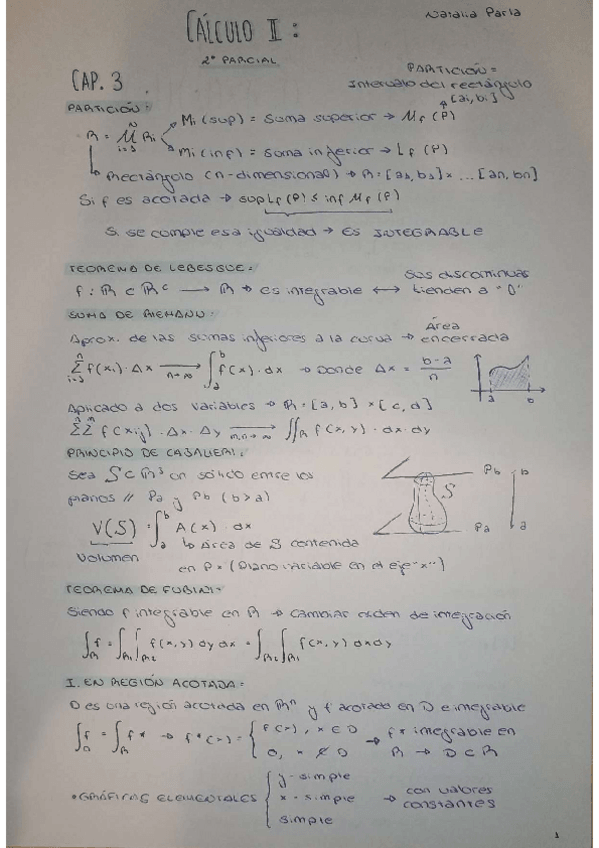 CÁLCULO II:
Natalia Parla
2º PARCIAL
CAP. 3
PARTICIÓN =
Intervalo del rectángulo
[ai, bi]
PARTICIÓN:
Mi (sup) = Suma superior → Mf (P)
R = ⋃ Ri
Mi (inf) = Suma inferior → Lf (P)
Rectángulo (n-dimensional) → R = [a1, b1] × ... [an, bn]
Si f es acotada → sup Lf (P) ≤ inf Mf (P)
Si se cumple esa igualdad → ES INTEGRABLE
TEOREMA DE LEBESGUE:
sus discontinuas
f: R ⊂ → R → es integrable ↔ tienden a "0"
SUMA DE RIEMANN:
Aprox. de las sumas inferiores a la curva → Área encerrada
∑ f(xi) · Δx → ∫ f(x) · dx → Donde Δx = b-a / n
a b
Aplicado a dos variables → R = [a, b] × [c, d]
∑∑ f(xij) · Δx · Δy → ∬R f(x, y) · dx · dy
PRINCIPIO DE CAVALIERI:
Sea S ⊂ R³ un sólido entre los
planos // Pa y Pb (b > a)
Pb b
S
Pa a
V(S) = ∫ A(x) · dx
Volumen
↳ Área de S contenida
en P = (Plano variable en el eje "x")
TEOREMA DE FUBINI:
Siendo f integrable en R → cambiar orden de integración
∫R f = ∫R1 ∫R2 f(x, y) dy dx = ∫R2 ∫R1 f(x, y) dx dy
I. EN REGIÓN ACOTADA:
D es una región acotada en Rⁿ y f acotado en D e integrable
∫ f = ∫R f* → f*(x) = { f(x), x ∈ D → f* integrable en
0, x ∉ D R → D ⊂ R
y-simple
• GRÁFICAS ELEMENTALES { x-simple → con valores constantes
simple
1